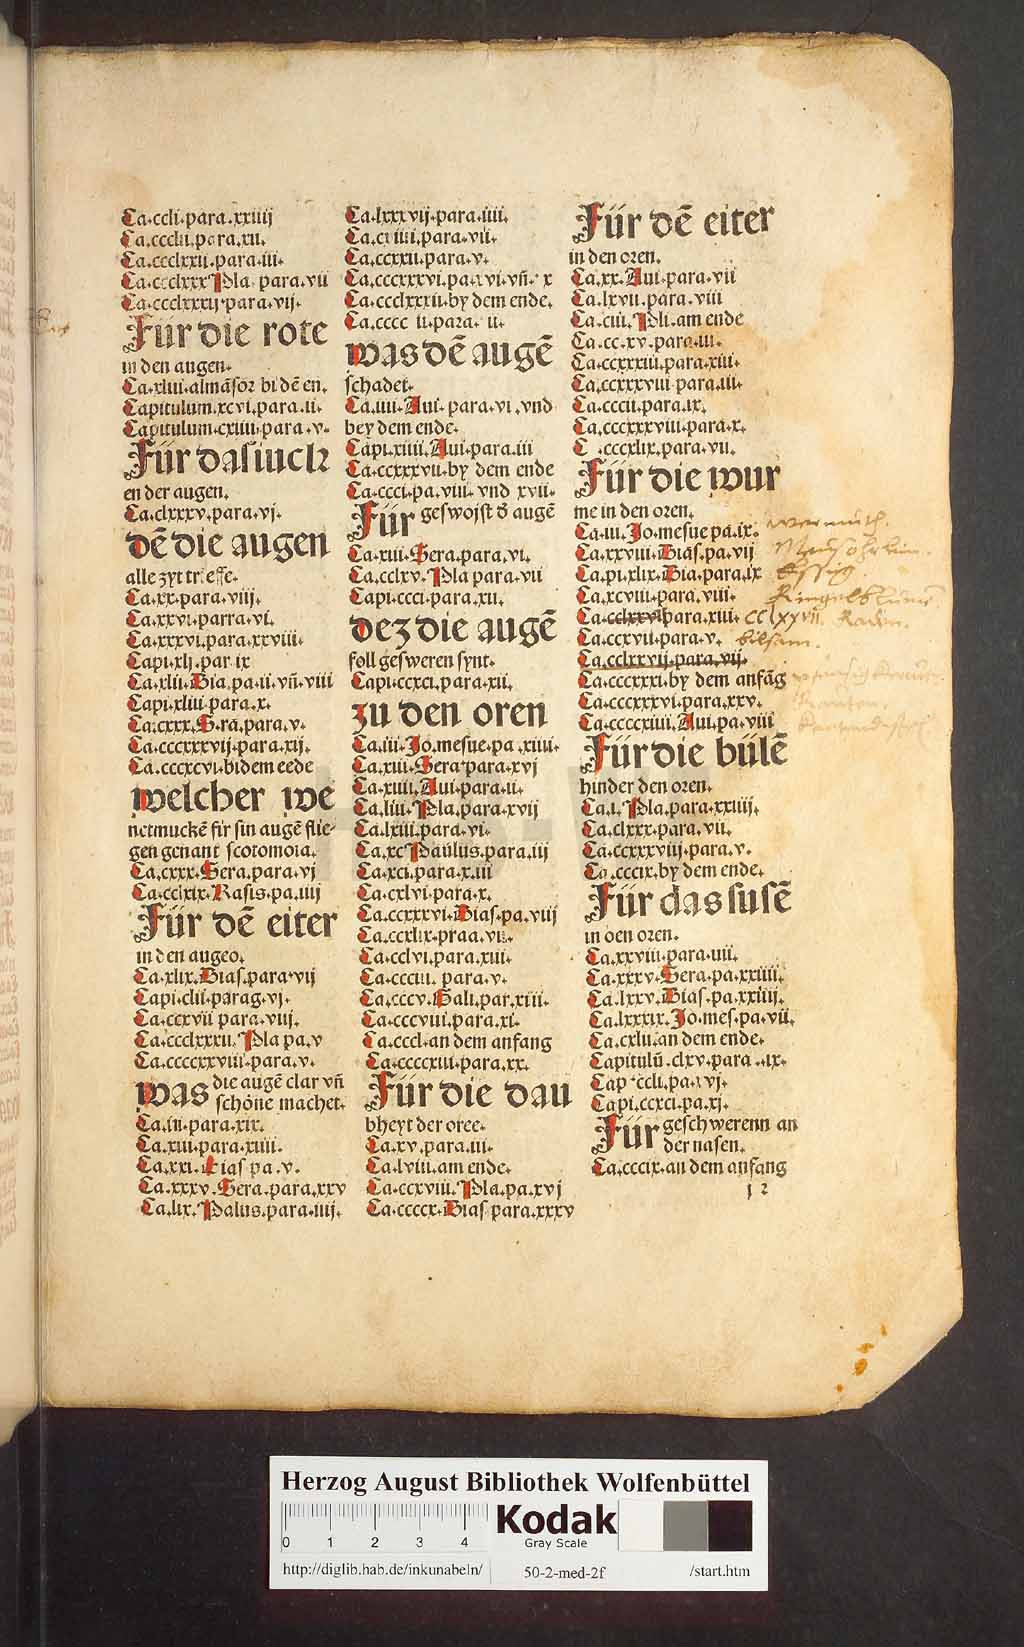 Ca.ccli.para.xxiiij
Ca.ccclii.para.xii.
Ca.ccclxxii.para.iii.
Ca.ccclxxx Pla.para.vii
Ca.ccclxxxij.para.vij.
Für die rote
in den augen.
Ca.xliii.almāsor bi dē en.
Capitulum.xcvi.para.ii.
Capitulum.cxiiii.para.v.
Für das iuck
en der augen.
Ca.clxxxv.para.vj.
dē die augen
alle zyt trieffe.
Ca.xx.para.viij.
Ca.xxvi.parra.vi.
Ca.xxxvi.para.xxviii.
Capi.xlj.par ix
Ca.xlii.Dia.pa.ii.vn̄.viii
Capi.xliii.para.x.
Ca.cxxx.Sera.para.v.
Ca.cccxxxvij.para.xij.
Ca.cccxcvi.bi dem eede
welcher we
net mucken̄ fir sin augē flie-
gen genant scotomoia.
Ca.cxxx.Sera.para.vj
Ca.cclxix.Rasis.pa.iiij
Für dē eiter
in den augeo.
Ca.xlix.Dias.para.vij
Capi.clii.parag.vj.
Ca.ccxvii para.viij.
Ca.ccclxxxii.Pla pa.v
Ca.ccccxxviii.para.v.
was die augē clar vn̄
schöne machet.
Ca.iii.para.xix.
Ca.xiii.para.xiiii.
Ca.xxi.Dias pa.v.
Ca.xxxv.Sera.para.xxv
Ca.lix.Palus.para.iiij.
Ca.lxxxvij.para.iiii.
Ca.ciiiii.para.vii.
Ca.ccxxii.para.v.
Ca.cccxxxvi.pa.xvi.vn̄. x
Ca.ccclxxxii.by dem ende.
Ca.cccc ii.para. ii.
was dē augē
schadet.
Ca.iiii.Aui.para.vi.vnd
bey dem ende.
Capi.xiiii.Aui.para.iii
Ca.ccxxxvii.by dem ende
Ca.ccci.pa.viii.vnd xvii.
Für geswolst d' augē
Ca.xiii.Sera.para.vi.
Ca.cclxv.Pla para.vii
Capi.ccci.para.xii.
dez die augē
foll gesweren synt.
Capi.ccxci.para.xii.
zu den oren
Ca.iii.Jo.mesue.pa.xiiii.
Ca.xiii.Sera para.xvj
Ca.xiiii.Aui.para.ii.
Ca.liii.Pla.para.xvij
Ca.lxiii.para.vi.
Ca.xc Paulus.para.iij
Ca.xci.para.x.iii
Ca.cxlvi.para.x.
Ca.ccxxxvi.Dias.pa.viij
Ca.ccxlix.praa.vii.
Ca.cclvi.para.xiii.
Ca.ccciii.para.v.
Ca.cccv.Gali.par.xiii.
Ca.cccviii.para.xi.
Ca.cccl.an dem anfang
Ca.ccccxiii.para.xx.
Für die dau
bheyt der oree.
Ca.xv.para.iii.
Ca.lviii.am ende.
Ca.ccxviii.Pla.pa.xvj
Ca.ccccx.Dias para.xxxv
Für dē eiter
in den oren.
Ca.xx.Aui.para.vii
Ca.lxvii.para.viii
Ca.ciii.Pli.am ende
Ca.cc.xv.para.iii.
Ca.ccxxxiii.para.xiii.
Ca.ccxxxviii para.iii.
Ca.cccii.para.ix.
Ca.cccxxxviii.para.x.
C .cccxlix.para.vii.
Für die wur
me in den oren.
Ca.iii.Jo.mesue pa.ix. wermuth.
Ca.xxviii.Dias.pa.vij
Ca.pi.xlix.Dia.para.ix Essig.
Ca.xcviii.para.viii. Ringelblume
Ca.cclxxvi para.xiii. cclxxvii. Raden.
Ca.ccxvii.para.v. bilsam.
Ca.cclxxvij.para.vij.
Ca.cccxxxi.by dem anfāg
Ca.cccxxxvi.para.xxv.
Ca.ccccxiiii.Aui.pa.viii
Für die bülē
hinder den oren.
Ca.i.Pla.para.xxiiij.
Ca.clxxx.para.vii.
Ca.ccxxxviij.para.v.
Ca.cccix.by dem ende.
Für das susē
in oen oren.
Ca.xxviii.para.iiii.
Ca.xxxv.Sera.pa.xxiiii.
Ca.lxxv.Dias.pa.xxiiij.
Ca.lxxxix.Jo.mes.pa.vii.
Ca.cxlii.an dem ende.
Capitulū.clxv.para.ix.
Cap ccli.pa.xvj.
Capi.ccxci.pa.xj.
Für geschwerenn an
der nasen.
Ca.cccix.an dem anfang
j 2
Herzog August Bibliothek Wolfenbüttel
0 1 2 3 4
Kodak
Gray Scale
http://diglib.hab.de/inkunabeln/ 50-2-med-2f /start.htm